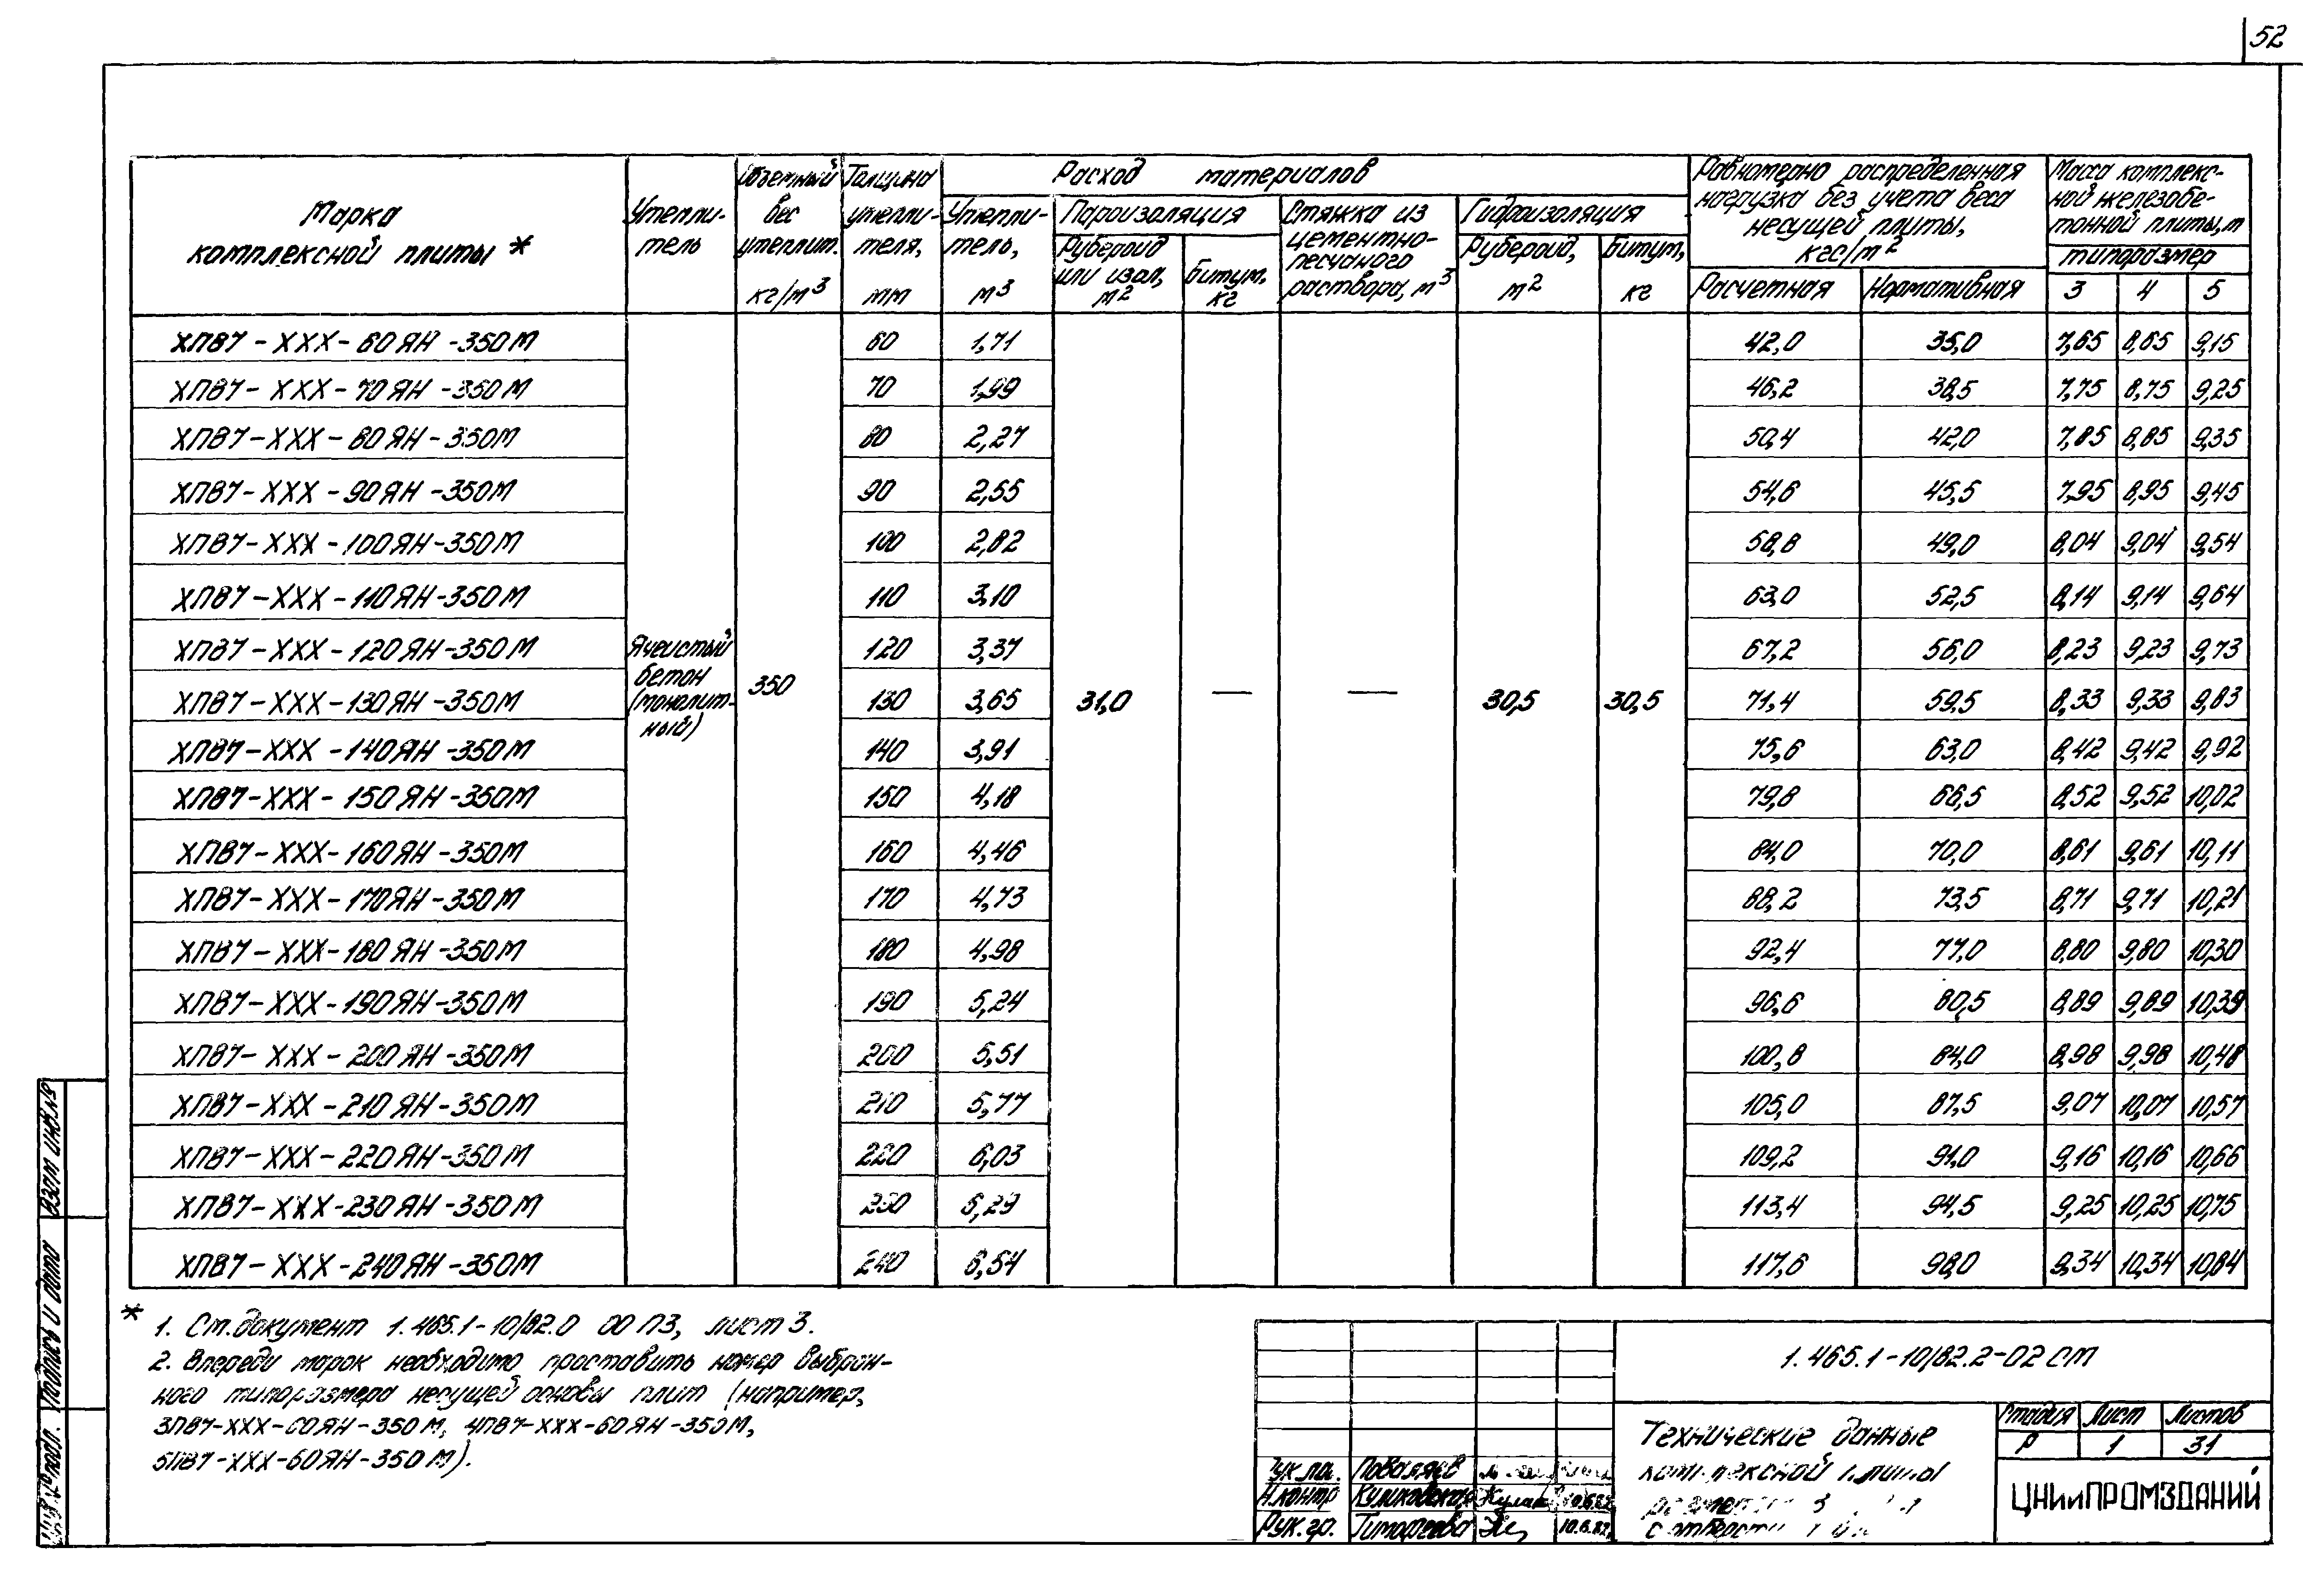 52
Марка комплексной плиты *
Утеплитель
Объемный вес утеплит. кг/м³
Толщина утеплителя, мм
Расход материалов
Утеплитель, м³
Пароизоляция
Рубероид или изол, м²
Битум, кг
Стяжка из цементно-песчаного раствора, м³
Гидроизоляция
Рубероид, м²
Битум, кг
Равномерно распределенная нагрузка без учета веса несущей плиты, кгс/м²
Расчетная
Нормативная
Масса комплексной железобетонной плиты, т
типоразмер
3 4 5
ХПВ7-ХХХ-60ЯН-350М 60 1,71 42,0 35,0 7,65 8,65 9,15
ХПВ7-ХХХ-70ЯН-350М 70 1,99 46,2 38,5 7,75 8,75 9,25
ХПВ7-ХХХ-80ЯН-350М 80 2,27 50,4 42,0 7,85 8,85 9,35
ХПВ7-ХХХ-90ЯН-350М 90 2,55 54,6 45,5 7,95 8,95 9,45
ХПВ7-ХХХ-100ЯН-350М 100 2,82 58,8 49,0 8,04 9,04 9,54
ХПВ7-ХХХ-110ЯН-350М 110 3,10 63,0 52,5 8,14 9,14 9,64
ХПВ7-ХХХ-120ЯН-350М 120 3,37 67,2 56,0 8,23 9,23 9,73
Ячеистый бетон (монолитный) 350 31,0 — — 30,5 30,5
ХПВ7-ХХХ-130ЯН-350М 130 3,65 71,4 59,5 8,33 9,33 9,83
ХПВ7-ХХХ-140ЯН-350М 140 3,91 75,6 63,0 8,42 9,42 9,92
ХПВ7-ХХХ-150ЯН-350М 150 4,18 79,8 66,5 8,52 9,52 10,02
ХПВ7-ХХХ-160ЯН-350М 160 4,46 84,0 70,0 8,61 9,61 10,11
ХПВ7-ХХХ-170ЯН-350М 170 4,73 88,2 73,5 8,71 9,71 10,21
ХПВ7-ХХХ-180ЯН-350М 180 4,98 92,4 77,0 8,80 9,80 10,30
ХПВ7-ХХХ-190ЯН-350М 190 5,24 96,6 80,5 8,89 9,89 10,39
ХПВ7-ХХХ-200ЯН-350М 200 5,51 100,8 84,0 8,98 9,98 10,48
ХПВ7-ХХХ-210ЯН-350М 210 5,77 105,0 87,5 9,07 10,07 10,57
ХПВ7-ХХХ-220ЯН-350М 220 6,03 109,2 91,0 9,16 10,16 10,66
ХПВ7-ХХХ-230ЯН-350М 230 6,29 113,4 94,5 9,25 10,25 10,75
ХПВ7-ХХХ-240ЯН-350М 240 6,54 117,6 98,0 9,34 10,34 10,84
* 1. См. документ 1.465.1-10/82.0 00 ПЗ, лист 3.
2. Впереди марок необходимо проставить номер выбран-
ного типоразмера несущей основы плит (например,
3ПВ7-ХХХ-60ЯН-350М, 4ПВ7-ХХХ-60ЯН-350М,
5ПВ7-ХХХ-60ЯН-350М).
1.465.1-10/82.2-02 СМ
Технические данные
комплексной плиты
с отверсти
Стадия Лист Листов
Р 1 31
ЦНИИПРОМЗДАНИЙ
Рук. ма. Поваляев
Н.контр Куликовская 10.6.82
Рук. гр. Тимофеева 10.6.82
Взам инв.№
Подпись и дата
Инв.№ подл.